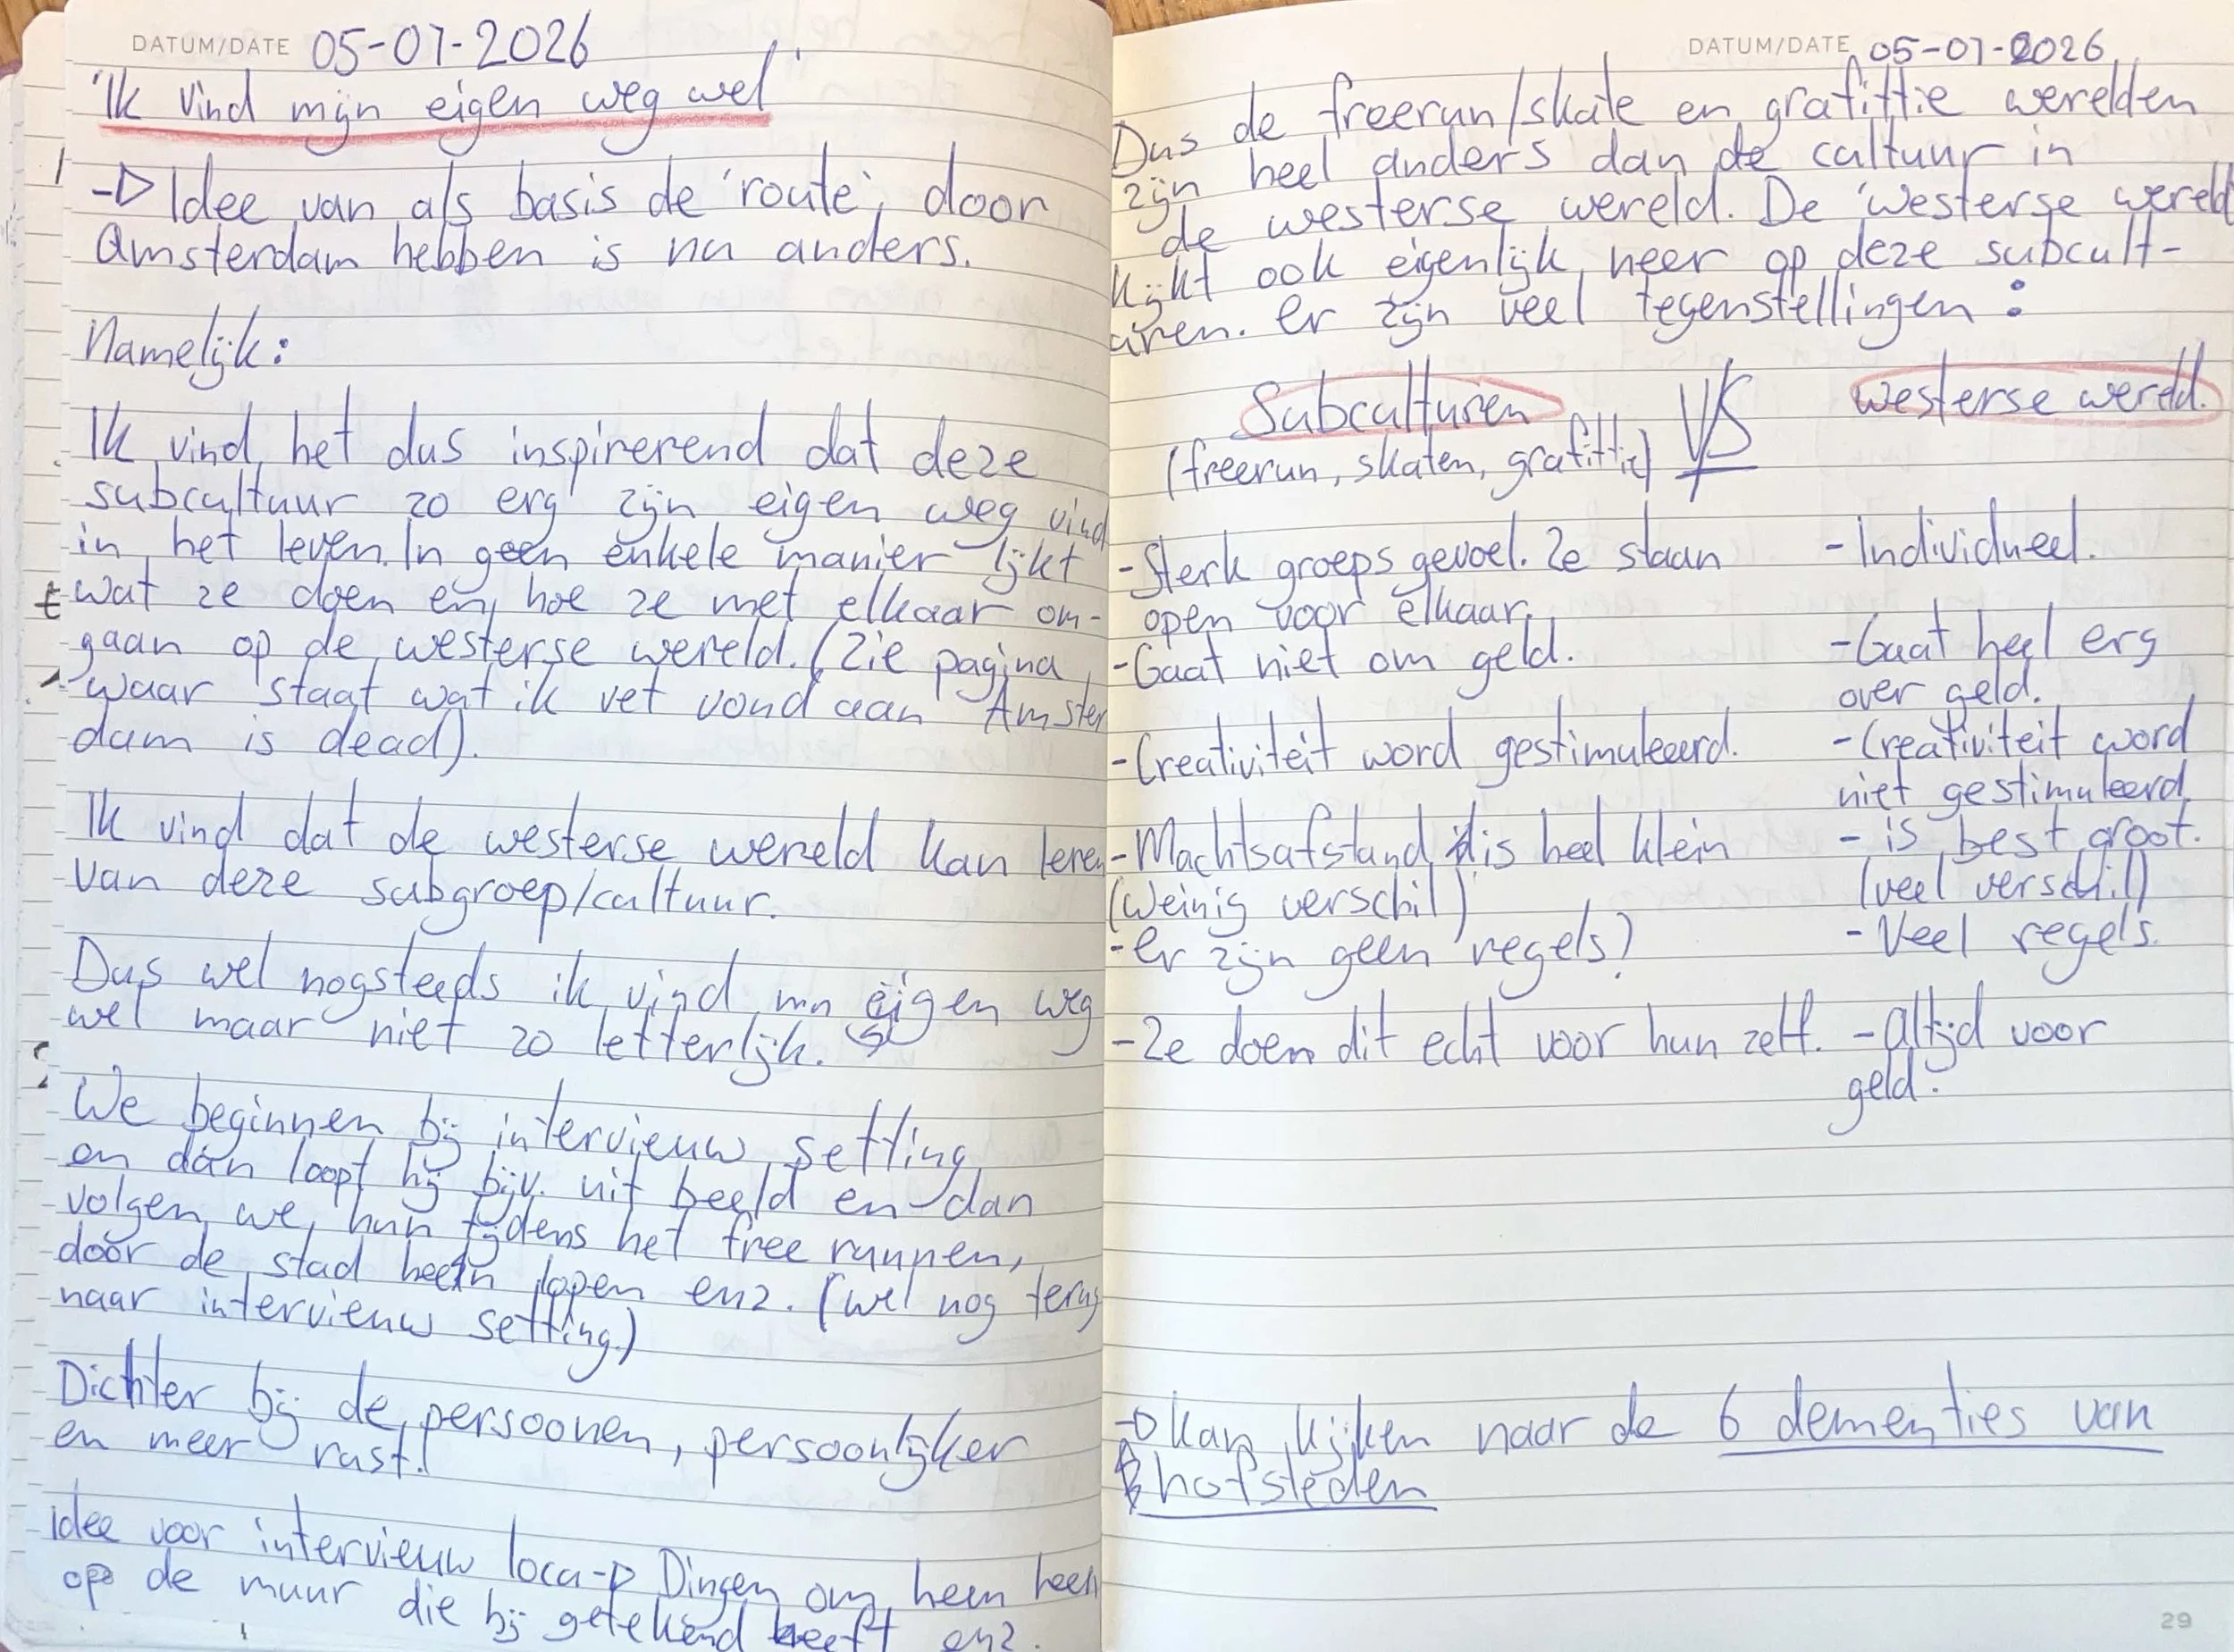 DATUM/DATE 05-01-2026
'Ik vind mijn eigen weg wel'
-> Idee van als basis de 'route', door
Amsterdam hebben is nu anders.
Namelijk:
Ik vind het dus inspirerend dat deze
subcultuur zo erg zijn eigen weg vind
in het leven. In geen enkele manier lijkt
wat ze doen en hoe ze met elkaar om-
gaan op de westerse wereld. (Zie pagina
waar staat wat ik vet vond aan Amster
dam is dead).
Ik vind dat de westerse wereld kan leren
van deze subgroep/cultuur.
Dus wel nogsteeds ik vind mn eigen weg
wel maar niet zo letterlijk.
We beginnen bij intervieuw setting
en dan loopt hij bijv. uit beeld en dan
volgen we hun tijdens het free runnen,
door de stad heen lopen enz. (wel nog terug
naar intervieuw setting.)
Dichter bij de persoonen, persoonlijker
en meer rust!
Idee voor intervieuw loca-> Dingen om hem heen
op de muur die hij getekend heeft enz.
DATUM/DATE 05-01-2026
Dus de freerun/skate en grafittie werelden
zijn heel anders dan de cultuur in
de westerse wereld. De 'westerse wereld
kijkt ook eigenlijk neer op deze subcult-
uren. Er zijn veel tegenstellingen:
Subculturen VS westerse wereld.
(freerun, skaten, grafittie)
- Sterk groeps gevoel. Ze staan - Individueel.
open voor elkaar.
- Gaat niet om geld. - Gaat heel erg
over geld.
- Creativiteit word gestimuleerd. - Creativiteit word
niet gestimuleerd
- Machtsafstand is heel klein - is best groot.
(weinig verschil) (veel verschil)
- Er zijn geen regels? - Veel regels.
- Ze doen dit echt voor hun zelf. - Altijd voor
geld.
-> kan kijken naar de 6 dementies van
hofsteden
29